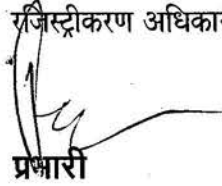 रजिस्ट्रीकरण अधिका
प्रभारी